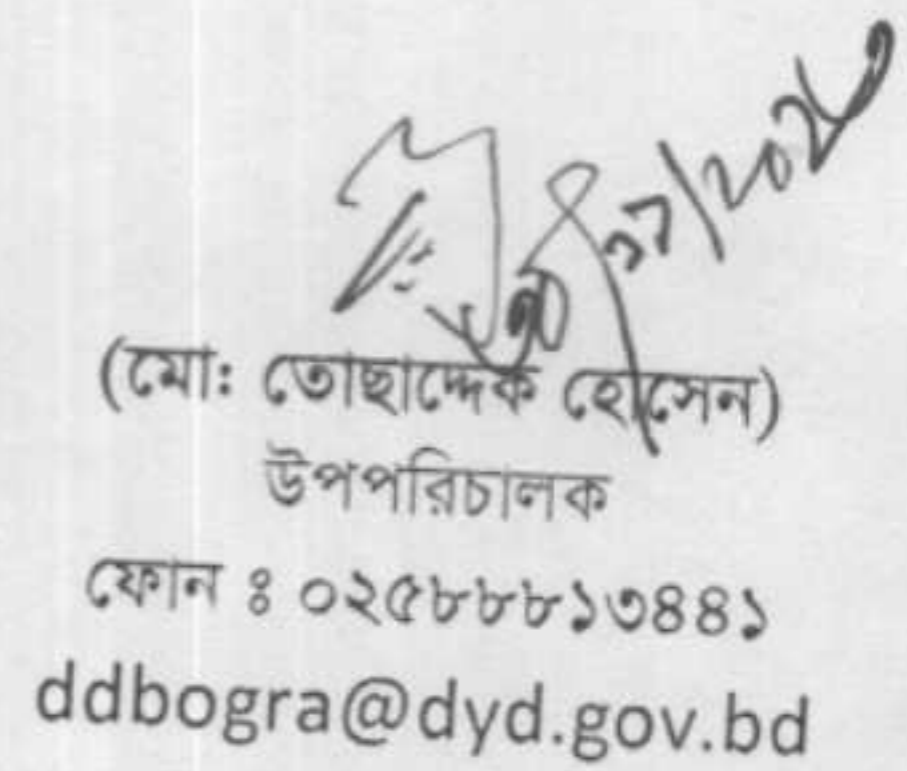 (মো: তোছাদ্দেক হোসেন)
উপপরিচালক
ফোন ঃ ০২৫৮৮৮১৩৪৪১
ddbogra@dyd.gov.bd